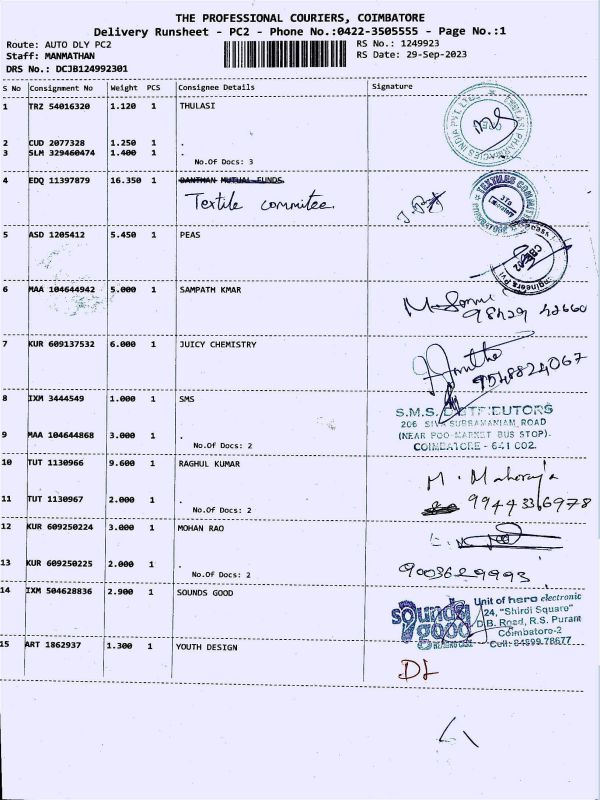 THE PROFESSIONAL COURIERS, COIMBATORE
Delivery Runsheet - PC2 - Phone No.:0422-3505555 - Page No.:1
Route: AUTO DLY PC2
RS No.: 1249923
Staff: MANMATHAN
RS Date: 29-Sep-2023
DRS No.: DCJB124992301
S No Consignment No Weight PCS Consignee Details Signature
1 TRZ 54016320 1.120 1 THULASI
2 CUD 2077328 1.250 1 .
3 SLM 329460474 1.400 1 .
No.Of Docs: 3
4 EDQ 11397879 16.350 1 BANTHAN MUTUAL FUNDS
Textile commitee
TEXTILES COMMITTEE
5 ASD 1205412 5.450 1 PEAS
6 MAA 104644942 5.000 1 SAMPATH KMAR
98429 42660
7 KUR 609137532 6.000 1 JUICY CHEMISTRY
9548824067
8 IXM 3444549 1.000 1 SMS
S.M.S. DISTRIBUTORS
206 SIVA SUBRAMANIAM ROAD
(NEAR POO-MARKET BUS STOP).
COIMBATORE - 641 002.
9 MAA 104644868 3.000 1 .
No.Of Docs: 2
10 TUT 1130966 9.600 1 RAGHUL KUMAR
M. Maharaja
11 TUT 1130967 2.000 1 .
9944336978
No.Of Docs: 2
12 KUR 609250224 3.000 1 MOHAN RAO
13 KUR 609250225 2.000 1 .
9003629993
No.Of Docs: 2
14 IXM 504628836 2.900 1 SOUNDS GOOD
sounds good
Unit of hero electronic
24, "Shirdi Square"
D.B. Road, R.S. Puram
Coimbatore-2
Cell: 84899 78677
15 ART 1862937 1.300 1 YOUTH DESIGN